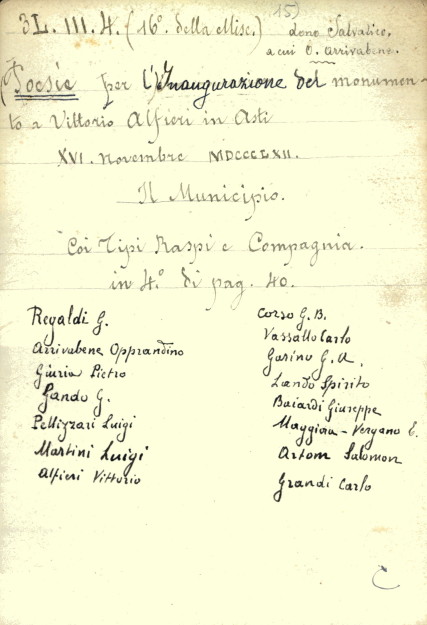 3L. III. 4. (16º. della Misc.) 15)
dono Salvatico.
a cui O. Arrivabene.
(Poesie per l'Inaugurazione del monumen-
to a Vittorio Alfieri in Asti
XVI. Novembre MDCCCLXII.
Il Municipio.
Coi Tipi Raspi e Compagnia.
in 4º. di pag. 40.
Regaldi G.
Arrivabene Opprandino
Giuria Pietro
Gando G.
Pellizzari Luigi
Martini Luigi
Alfieri Vittorio
Corso G. B.
Vassallo Carlo
Garino G. A.
Lando Spirito
Baiardi Giuseppe
Maggiora-Vergano E.
Artom Salomon
Grandi Carlo